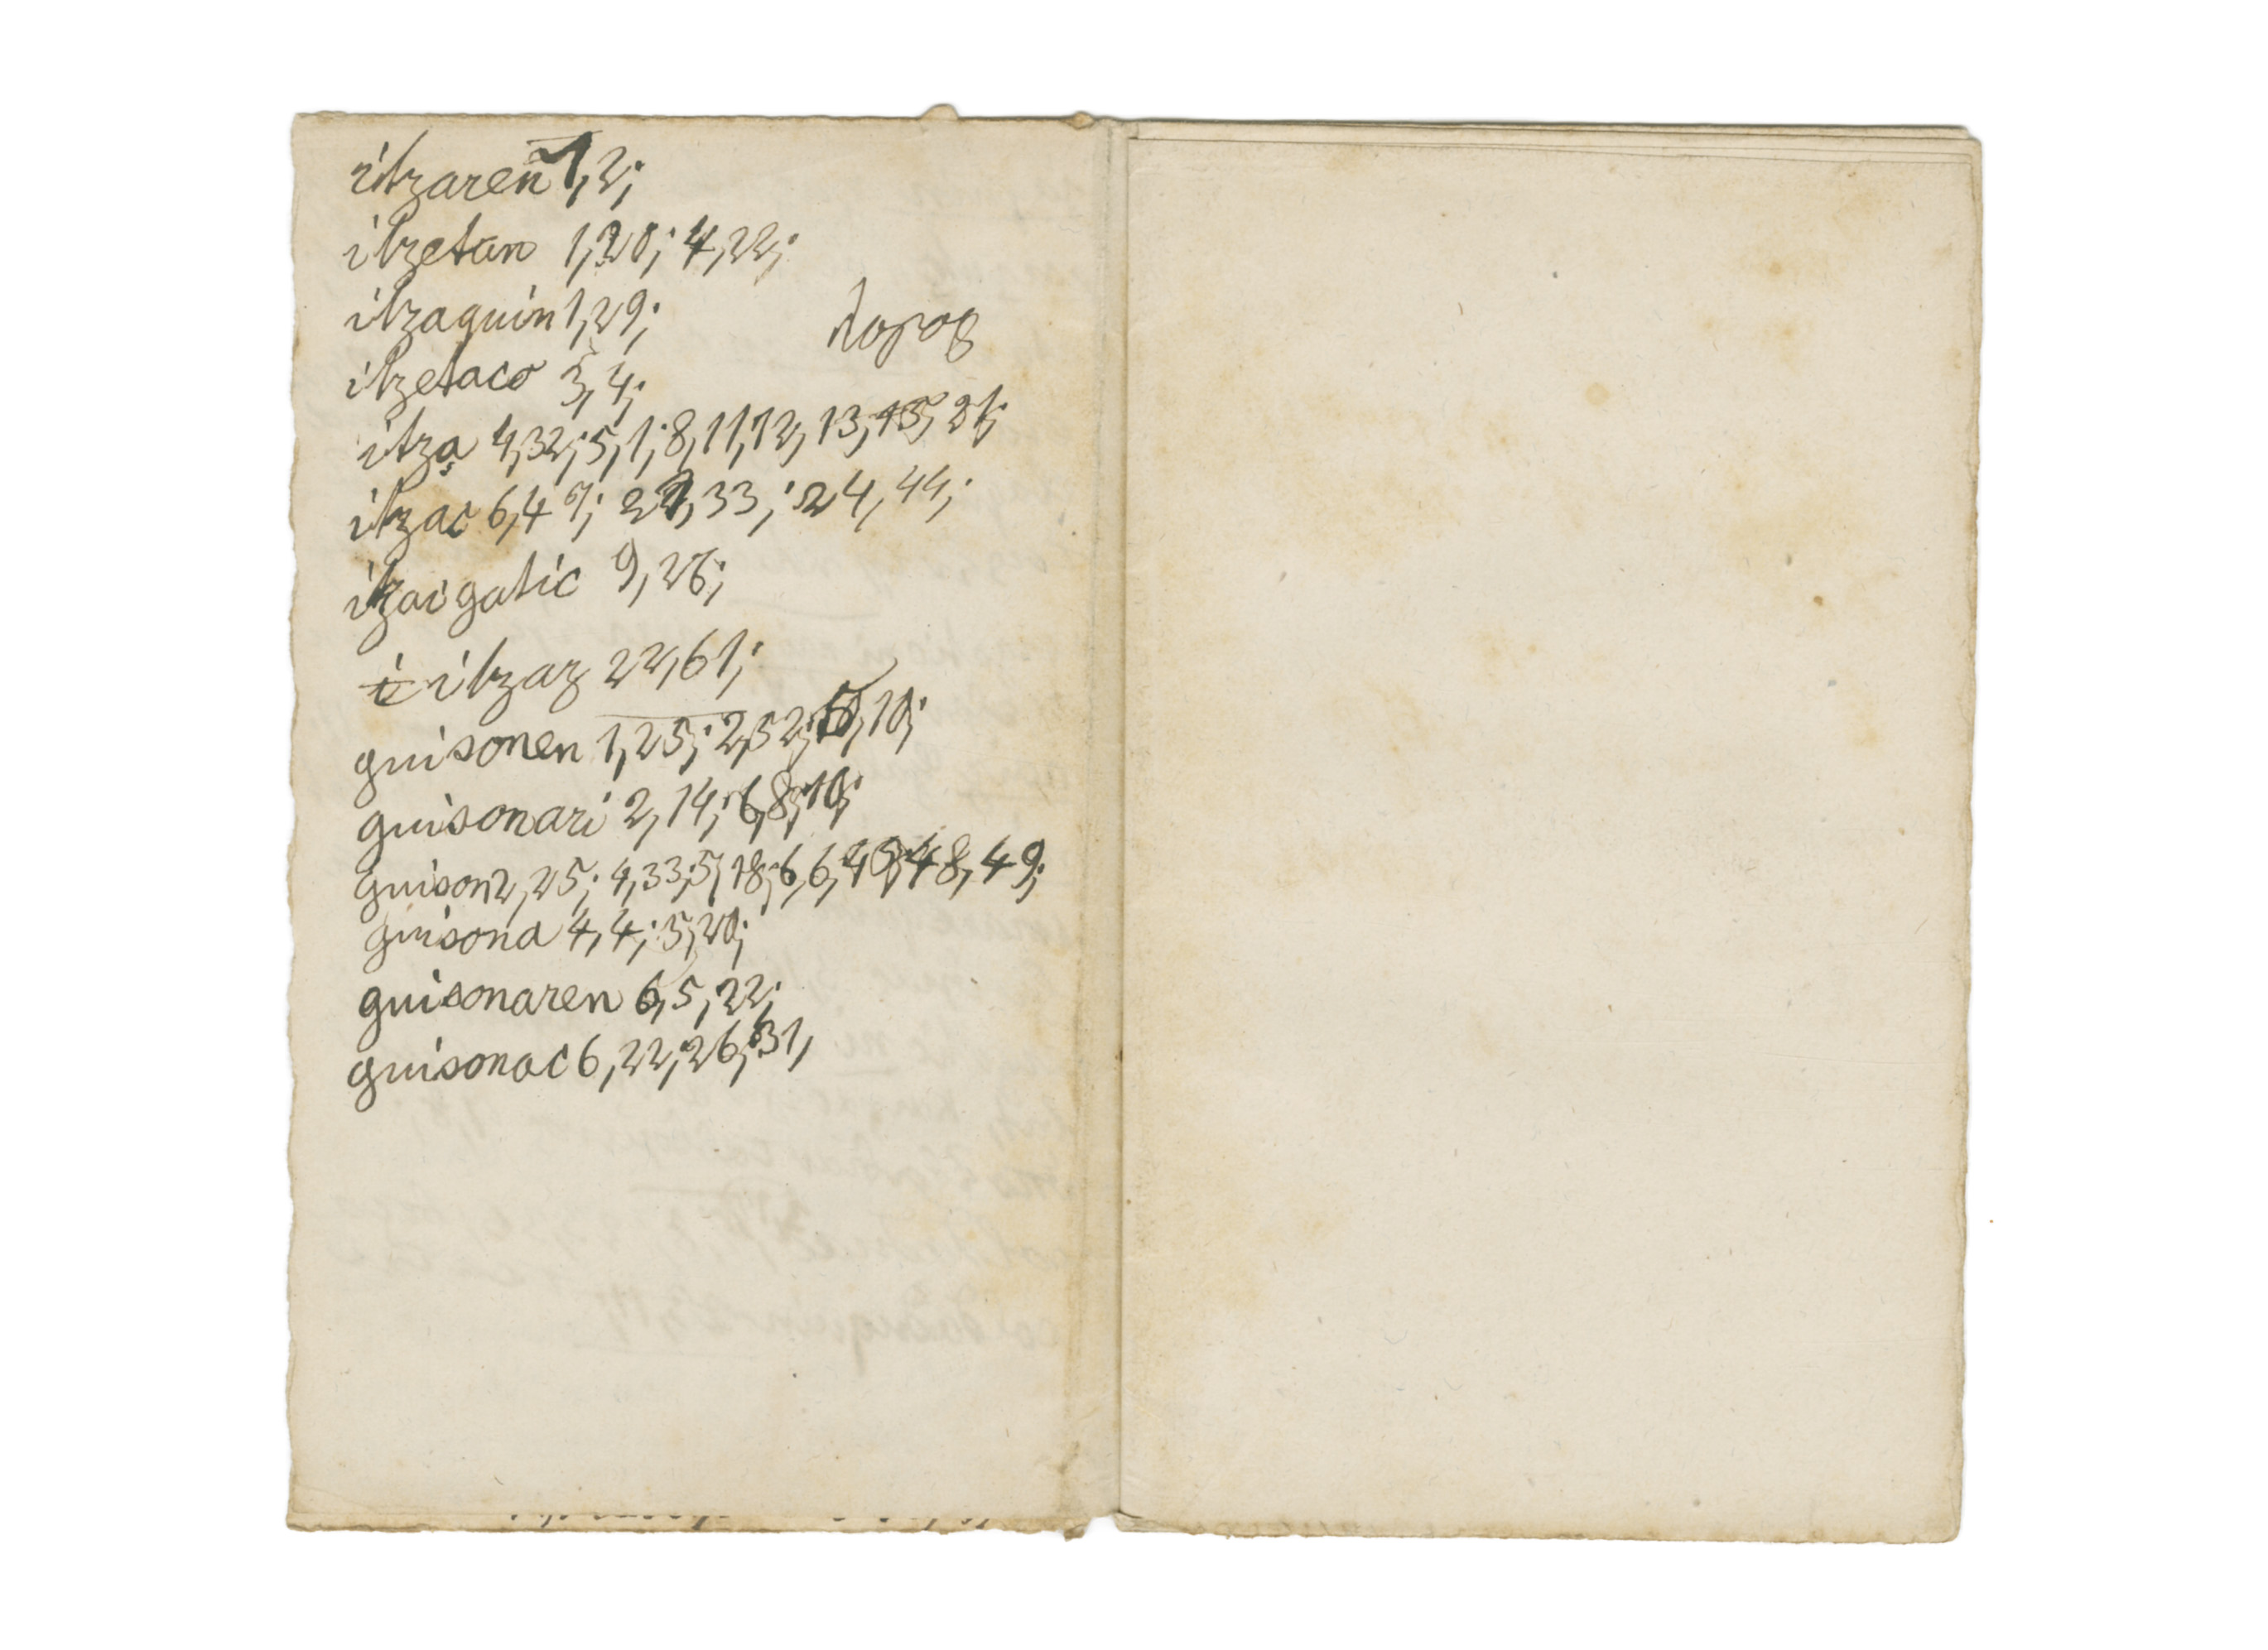 itzaren 1,2;
itzetan 1,20; 4,22;
itzaquin 1,29;
λογος
itzetaco 3,4;
itza 4,32; 5,1; 8,11,12,13,15,21;
itzac 6,47; 21,33; 24,44;
itzaigatic 9,26;
i itzaz 22,61;
guisonen 1,25; 2,52; 10;
guisonari 2,14; 6,8; 10;
guison 2,25; 4,33; 5,18; 6,6, 48, 49;
guisona 4,4; 5,20;
guisonaren 6,5,22;
guisonac 6,22; 26, 31,